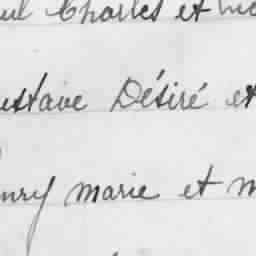 ul Charles et
ustave Désiré et
enry marie et m